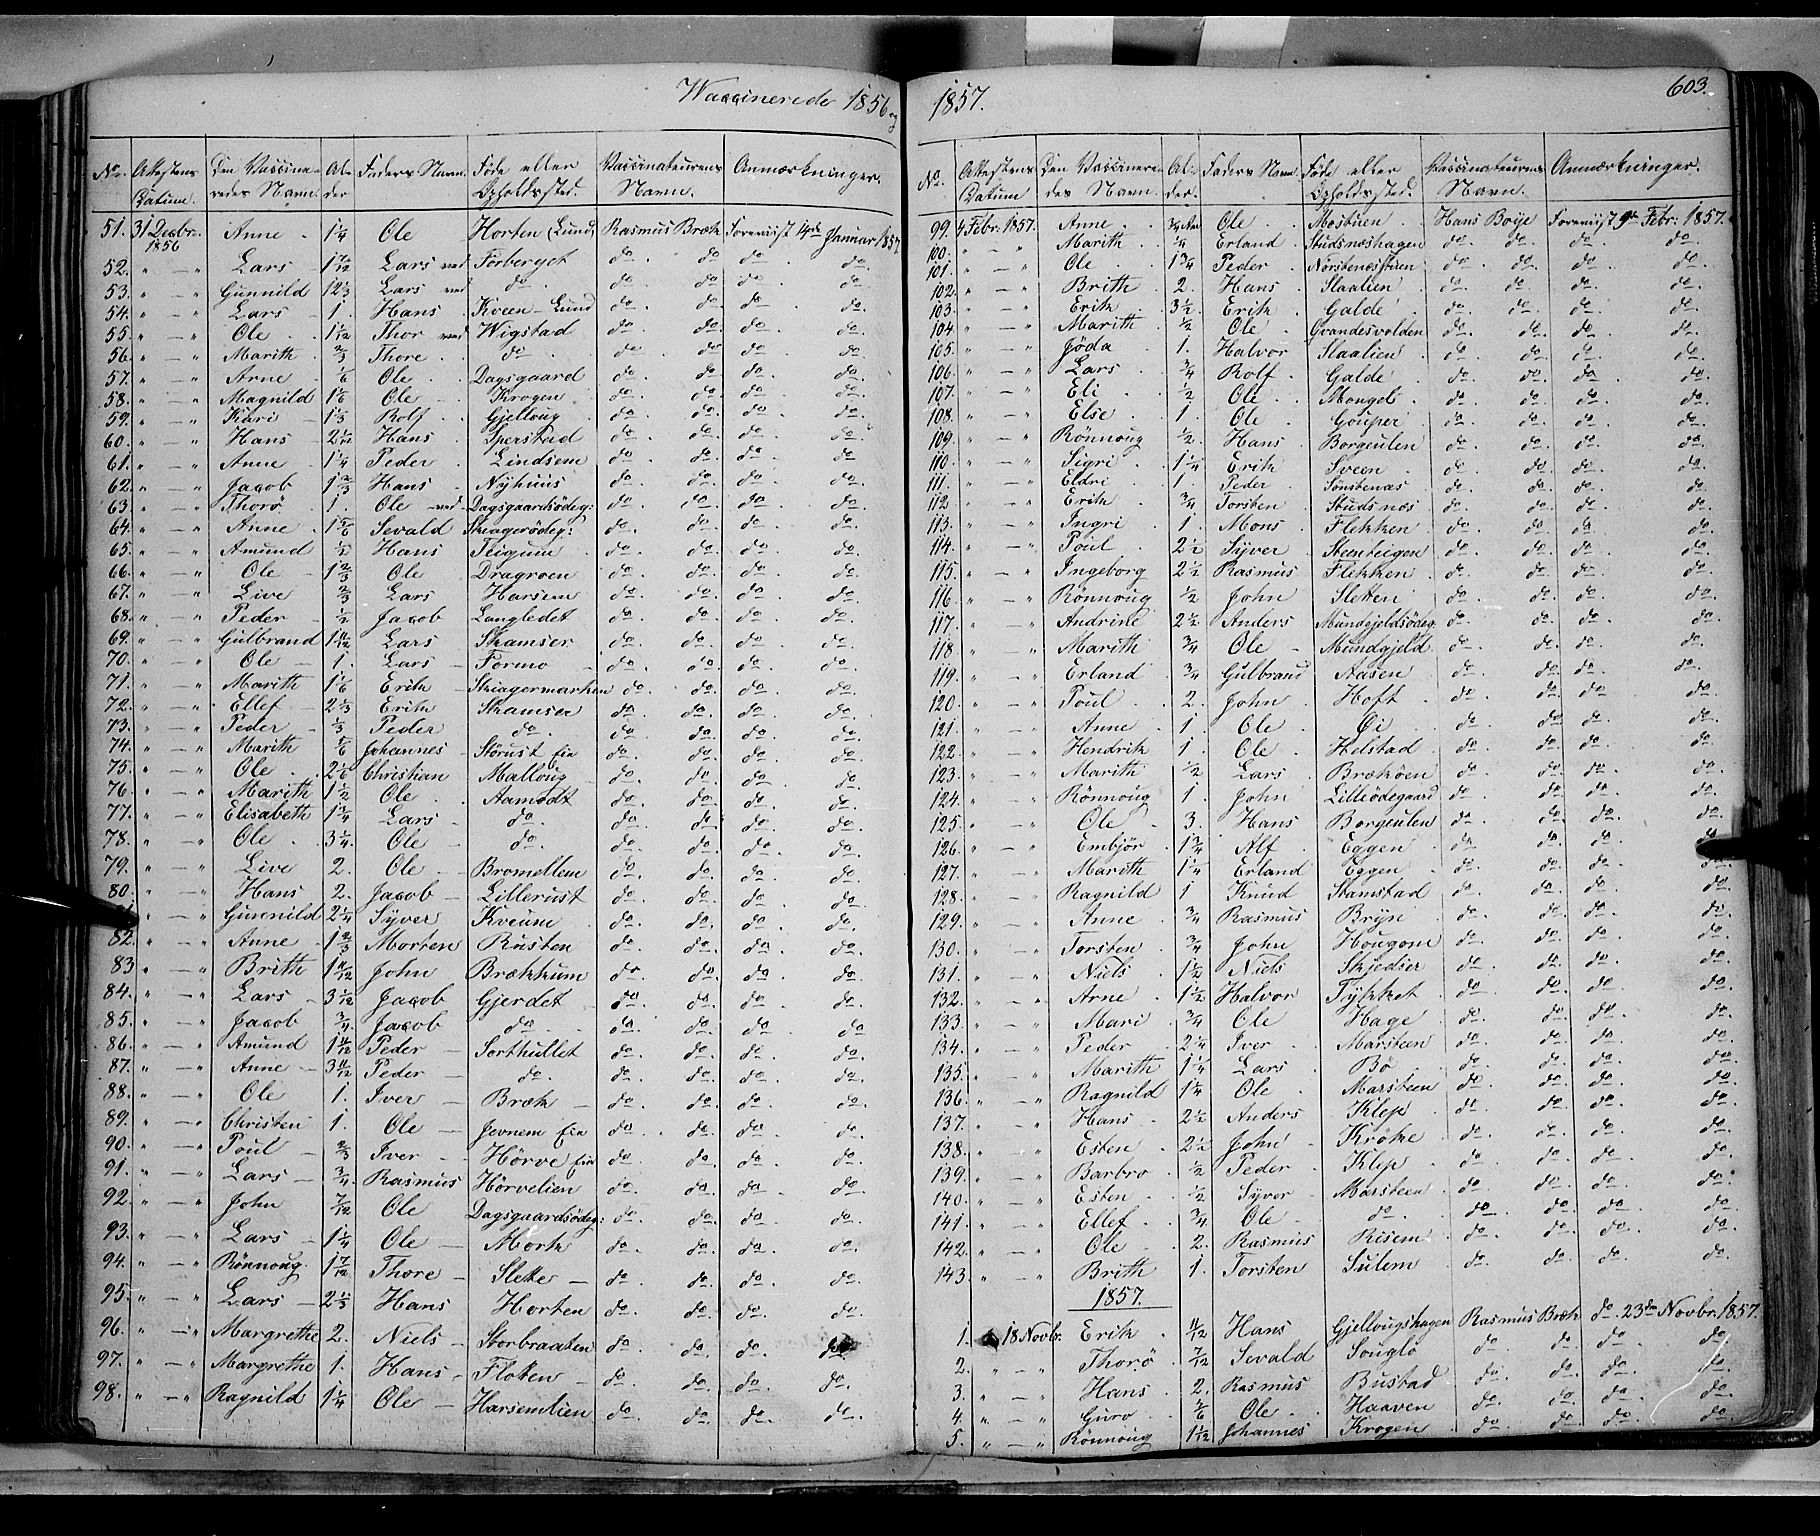 Waccinerede 1856 og
No. Attestens Datum. Den Vaccineredes Navn. Alder Faders Navn. Føde eller Opholdssted. Vaccinateurens Navn. Anmærkninger.
51. 31 Decbr. 1856 Anne 1¼ Ole Horten (Lund) Rasmus Bræk Foreviist 4de Januar 1857
52. " — " Lars 1 7/12 Lars ved Forberget do do. do do.
53. " — " Gunnild 12/3 Lars ved do. do do. do do.
54. " — " Lars 1. Hans Kveen Lund do do. do do.
55. " — " Ole 1 1/12 Thor ved Wigstad do do. do do.
56. " — " Marith 2/3 Thore do. do do. do do.
57. " — " Arne 1/6 Ole Dagsgaard do do. do do.
58. " — " Magnild 1 1/6 Ole Krogen do do. do do.
59. " — " Kari 1 1/3 Rolf Gjelloug do do. do do.
60. " — " Hans 2 1/12 Hans Sperstad do do. do do.
61. " — " Anne 1¼ Peder Lindsem do do. do do.
62. " — " Jacob 1 2/3 Hans Nyhuus do do. do do.
63. " — " Thorø 1. Ole ved Dagsgaardsödeg: do do. do do.
64. " — " Anne 1 5/6 Sevald Skiagerödeg: do do. do do.
65. " — " Amund ½ Hans Teigum do do. do do.
66. " — " Ole 1 2/3 Ole Dragroen do do. do do.
67. " — " Live 2/3 Lars Harsem do do. do do.
68. " — " Peder ½ Jacob Langledet do do. do do.
69. " — " Gulbrand 1 11/12 Lars Skamser do do. do do.
70. " — " Ole 1. Lars Formo do do. do do.
71. " — " Marith 1 1/6 Erik Skiagermarken do do. do do.
72. " — " Ellef 2 1/3 Erik Skamser do do. do do.
73. " — " Peder 1/3 Peder do. do do. do do.
74. " — " Marith 5/6 Johannes Störust Eie do do. do do.
75. " — " Ole 2 1/6 Christian Malloug do do. do do.
76. " — " Marith 1½ Ole Aamodt do do. do do.
77. " — " Elisabeth 1¾ Lars do. do do. do do.
78. " — " Ole 3¼ Ole do. do do. do do.
79. " — " Live 2. Ole Bromellem do do. do do.
80. " — " Hans 2. Jacob Lillerust do do. do do.
" — " Gunnild 2¼ Syver Kveum do do. do do.
82. " — " Anne 1 2/3 Morten Rusten do do. do do.
83 " — " Brith 1 11/12 John Brækkum do do. do do.
84. " — " Lars 3 1/12 Jacob Gjerdet do do. do do.
85. " — " Jacob ¾ Jacob do. do do. do do.
86. " — " Amund 1 11/12 Peder Sorthullet do do. do do.
87. " — " Anne 3 11/12 Peder do. do do. do do.
88. " — " Ole 1. Iver Bræk do do. do do.
89. " — " Christen 1. Ole Jevnem Eie do do. do do.
90. " — " Poul 2/3 Iver Hörve Eie do do. do do.
91. " — " Lars ¾ Rasmus Hörvelien do do. do do.
92. " — " John 7/12 Ole Dagsgaardsödeg: do do. do do.
93. " — " Lars 1¼ Ole Mork do do. do do.
94. " — " Rönnoug 1 7/12 Thore Slette do do. do do.
95. " — " Lars 2 1/3 Hans Horten do do. do do.
96. " — " Margrethe 2. Niels Storbraaten do do. do do.
97. " — " Margrethe 1. Hans Floten do do. do do.
98. " — " Ragnild 1¼ Ole Harsemlien do do. do do.
1857. 603.
No. Attestens Datum Den Vaccineredes Navn. Alder. Faders Navn Föde eller Opholdssted. Vaccinateurens Navn. Anmærkninger.
99. 4 Febr. 1857. Anne Ole Mostuen Hans Boije Foreviist 9de Febr: 1857.
100. " — " Marith ¼ Erland Studsneshagen do do. do do.
101. " — " Ole 1¾ Peder Norstenæsstuen do do. do do.
102. " — " Brith 2. Hans Slaalien do do. do do.
103. " — " Erik 3½ Erik Galde do do. do do.
104. " — " Marith ½ Ole Qvandesvolden do do. do do.
105. " — " Jöda 1. Halvor Slaalien do do. do do.
106. " — " Lars ¾ Rolf Galde do do. do do.
107. " — " Eli ½ Ole Mongels do do. do do.
108. " — " Else 1. Ole Gouper do do. do do.
109. " — " Rönnoug ½ Hans Borgeulen do do. do do.
110. " — " Sigri 1¼ Erik Sveen do do. do do.
111. " — " Eldri 1. Peder Sönstenæs do do. do do.
112 " — " Erik ¾ Torsten Studsnes do do. do do.
113. " — " Ingri 1. Mons Flekken do do. do do.
114. " — " Poul 2½ Syver Steenteigen do do. do do.
115. " — " Ingeborg 2½ Rasmus Flekken do do. do do.
116. " — " Rönnoug ½ John Sletten do do. do do.
117. " — " Andrine 2½ Anders Mundgjeldsödeg: do do. do do.
118. " — " Marith ¾ Ole Mundgjeld do do. do do.
119. " — " Erland ¾ Gulbrand Aasen do do. do do.
120. " — " Poul 2. John Hoft do do. do do.
121. " — " Anne 1. Ole Öi do do. do do.
122. " — " Hendrik 1. Ole Holstad do do. do do.
123. " — " Marith ½ Lars Bræköen do do. do do.
124. " — " Rönnoug 1. John Lilleödegaard do do. do do.
125. " — " Ole 3. Hans Borgeulen do do. do do.
126. " — " Embjör 1¾ Alf Eggen do do. do do.
127. " — " Marith 1¼ Erland Eggen do do. do do.
128. " — " Ragnild 1 Knud Stamstad do do. do do.
129. " — " Anne ¾ Rasmus Bryn do do. do do.
130. " — " Torsten ¾ John Hougom do do. do do.
131. " — " Niels 1½ Niels Skjedser do do. do do.
132. " — " Arne 1½ Halvor Tykket do do. do do.
133. " — " Mari ¾ Ole Hage do do. do do.
134. " — " Peder 2¼ Iver Marsteen do do. do do.
135. " — " Marith 1¼ Lars Bö do do. do do.
136. " — " Ragnild 1¼ Ole Marsteen do do. do do.
137. " — " Hans 2½ Anders Klep do do. do do.
138. " — " Esten 2½ John Kröke do do. do do.
139. " — " Barbro ½ Peder Klep do do. do do.
140. " — " Esten ½ Syver Marsteen do do. do do.
141. " — " Ellef ¾ Ole do. do do. do do.
142. " — " Ole 2. Rasmus Risem do do. do do.
143. " — " Brith 1. Torsten Sulem do do. do do.
1857.
1. 18 Novbr. Erik 11/12 Hans Gjellougshagen Rasmus Bræk do. 23de Novbr. 1857.
2. " " Thorö 7/12 Sevald Souglö do do. do do.
3. " — " Hans 2. Rasmus Bustad do do. do do.
4. " — " Guro 5/6 Ole Haaven do do. do do.
5. " — " Rönnoug 1 1/12 Johannes Krogen do do. do do.